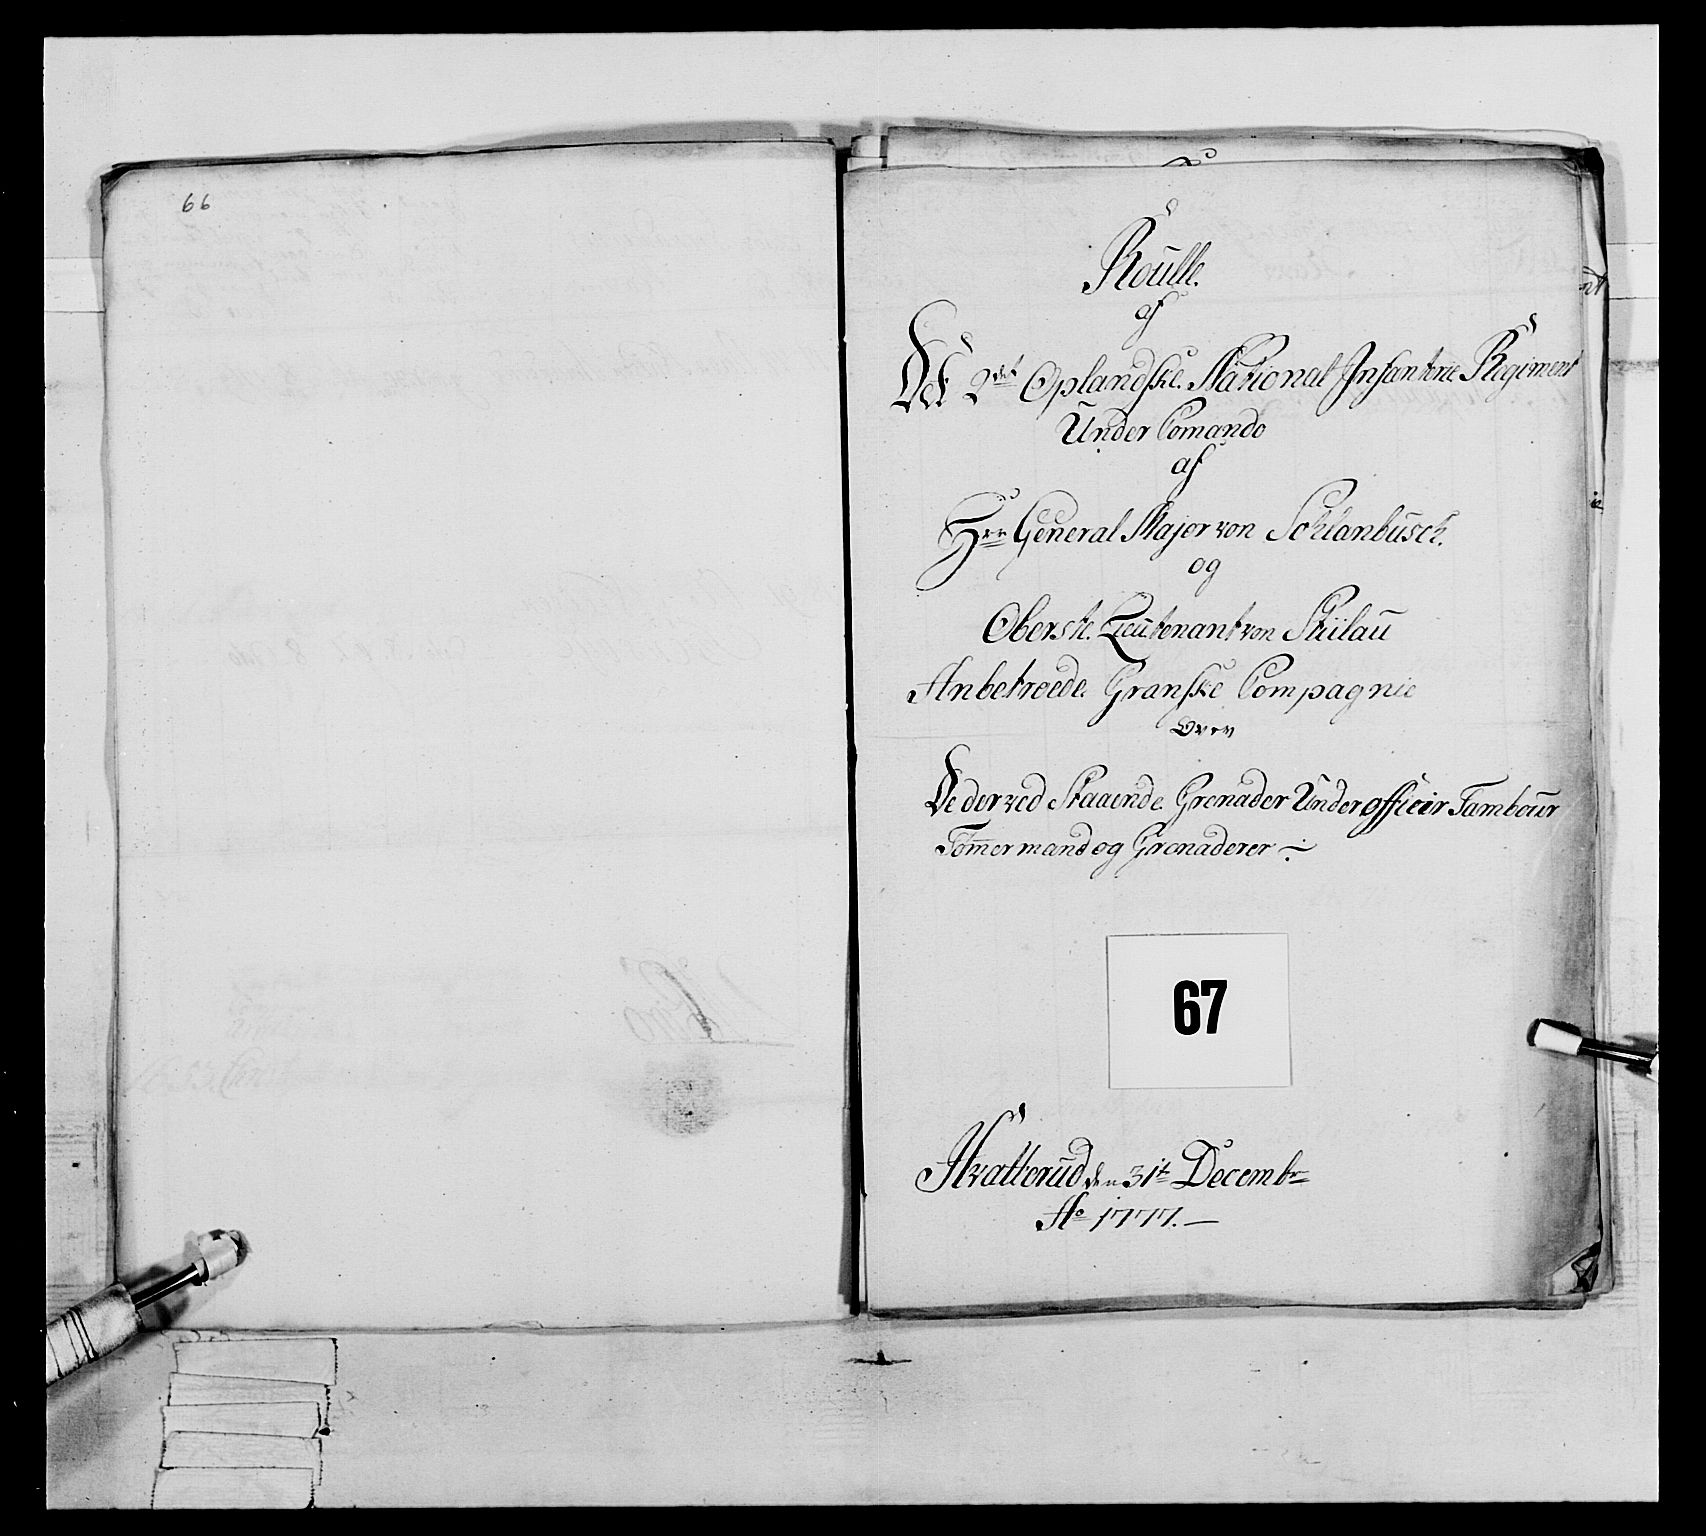 66
Roulle.
af
Det 2det Oplandske National Infanterie Regiment
Under Comando
af
Hrr General Major von Schlanbusch.
og
Oberste Lieutenant von Stülau
Anbetroede Granske Compagnie
Over
De derved Staaende Grenader Underofficier Tambour
Tømmermand og Grenaderer
67
den 31te Decembr
Ao 1777.